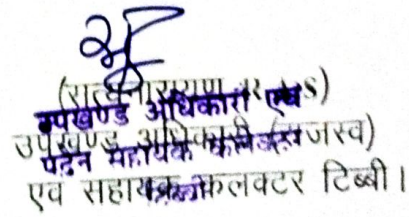 (सत्यनारायण R.A.S)
उपखण्ड अधिकारी एवं
उपखण्ड अधिकारी (राजस्व)
पदेन सहायक कलेक्टर
एव सहायक कलक्टर टिब्बी।